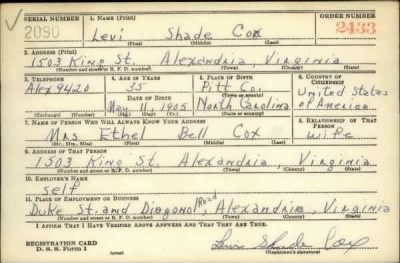 SERIAL NUMBER 1. NAME (Print) ORDER NUMBER
2090 Levi Shade Cox 2433
(First) (Middle) (Last)
2. ADDRESS (Print)
1503 King St. Alexandria, Virginia
(Number and street or R. F. D. number) (Town) (County) (State)
3. TELEPHONE 4. AGE IN YEARS 5. PLACE OF BIRTH 6. COUNTRY OF CITIZENSHIP
Alex 9420 35 Pitt Co. United States
DATE OF BIRTH (Town or county)
May 11, 1905 North Carolina of America
(Exchange) (Number) (Mo.) (Day) (Yr.) (State or country)
7. NAME OF PERSON WHO WILL ALWAYS KNOW YOUR ADDRESS 8. RELATIONSHIP OF THAT PERSON
Mrs Ethel Bell Cox wife
(Mr., Mrs., Miss) (First) (Middle) (Last)
9. ADDRESS OF THAT PERSON
1503 King St. Alexandria, Virginia
(Number and street or R. F. D. number) (Town) (County) (State)
10. EMPLOYER'S NAME
Self
11. PLACE OF EMPLOYMENT OR BUSINESS
Duke St. and Diagonal Road, Alexandria, Virginia
(Number and street or R. F. D. number) (Town) (County) (State)
I AFFIRM THAT I HAVE VERIFIED ABOVE ANSWERS AND THAT THEY ARE TRUE.
REGISTRATION CARD
D. S. S. Form 1 (over) Levi Shade Cox
(Registrant's signature)